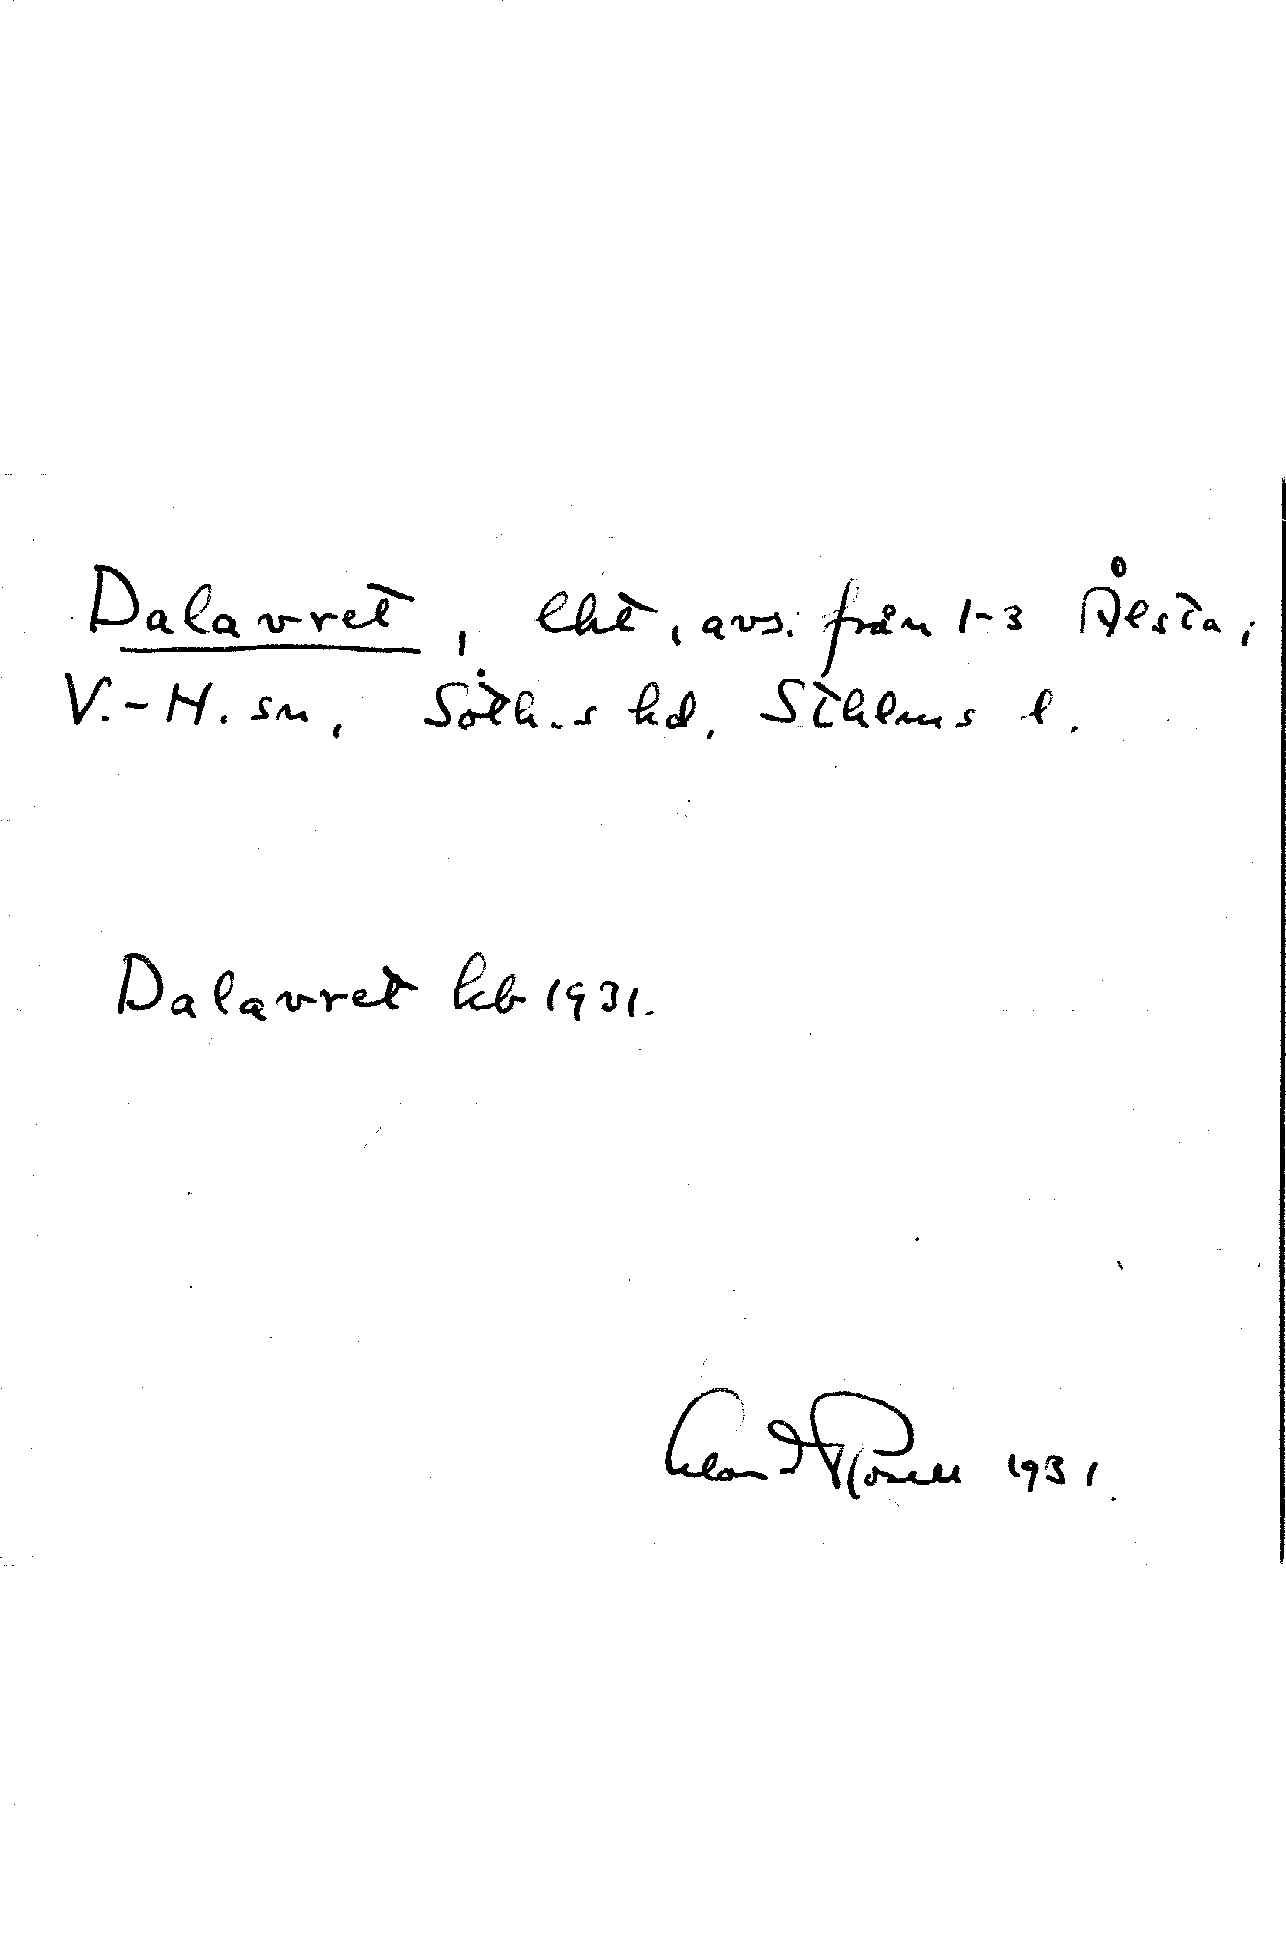 Dalavret, lht, avs. från 1-3 Ålsta,
V.-H. sn, Söth.s hd, Sthlms l.
Dalavret kb 1931.
1931.